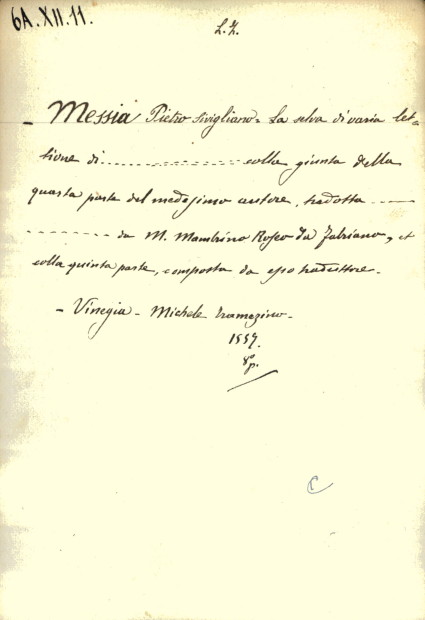 6A.XII.11.
L.Z.
- Messia Pietro Sivigliano = La selva di varia let=
tione di................colla giunta della
quarta parte del medesimo autore, tradotta ........
............ da M. Mambrino Roseo da Fabriano, et
colla quinta parte, composta da esso traduttore.
- Vinegia - Michele Tramezino -
1557.
8°p.
C